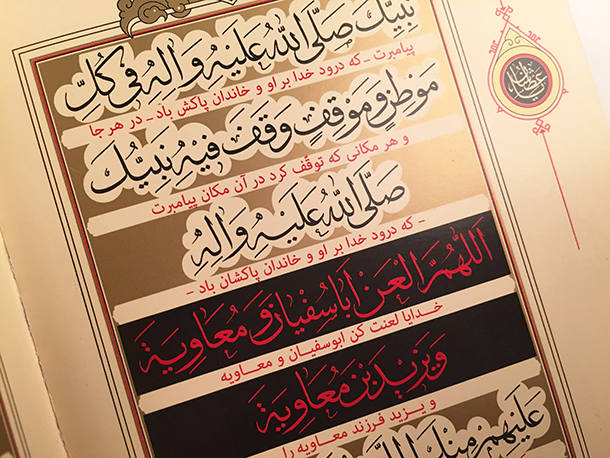 نَبِيِّكَ صَلَّى اللهُ عَلَيْهِ وَآلِهِ فِى كُلِّ
پیامبرت ـ که درود خدا بر او و خاندان پاکش باد ـ در هر جا
مَوْطِنٍ وَ مَوْقِفٍ وَقَفَ فِيهِ نَبِيُّكَ
و هر مکانی که توقّف کرد در آن مکان پیامبرت
صَلَّى اللهُ عَلَيْهِ وَآلِهِ
ـ که درود خدا بر او و خاندان پاکشان باد ـ
اَللّٰهُمَّ الْعَنْ اَبَاسُفْيَانَ وَ مُعَاوِيَةَ
خدایا لعنت کن ابوسفیان و معاویه
وَ يَزِيدَ بْنَ مُعَاوِيَةَ
و یزید فرزند معاویه را
عَلَيْهِمْ مِنْكَ